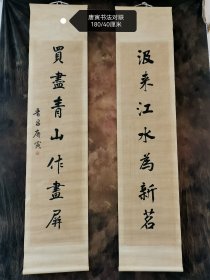 唐寅书法对联
180/40厘米
汲来江水为新茗
買盡青山作畫屏
晋昌唐寅